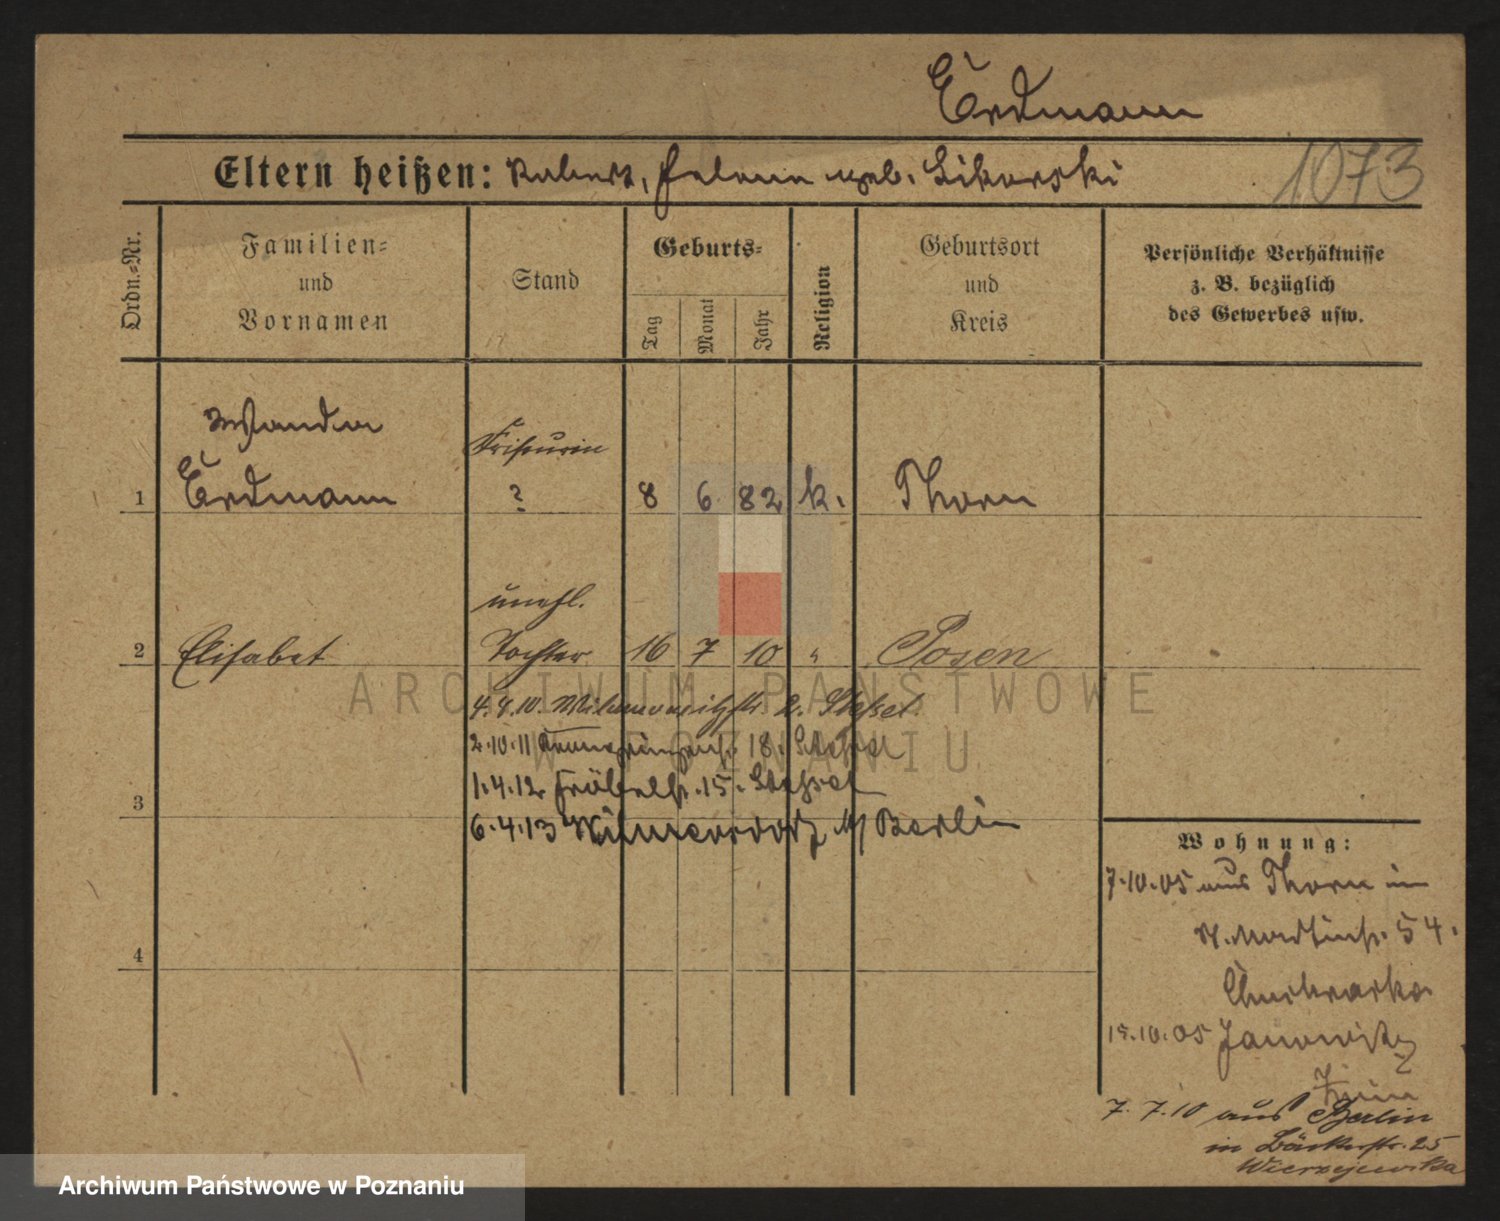 Erdmann
Eltern heißen: Robert, Helene geb. Sikorski
1073
Ordn.-Nr.
Familien-
und
Vornamen
Stand
Geburts-
Tag
Monat
Jahr
Religion
Geburtsort
und
Kreis
Persönliche Verhältnisse
z. B. bezüglich
des Gewerbes usw.
Wanda
Friseurin
1 Erdmann ? 8 6 82 k. Thorn
unehl.
2 Elisabet Tochter 16 7 10 " Posen
ARCHIWUM PAŃSTWOWE
W POZNANIU
4.4.10. 2.
2.10.11 Kronprinzenstr. 18.
1.4.12 Fröbelstr. 15.
3
6.4.13 Wilmersdorf b/ Berlin
Wohnung:
7.10.05 aus Thorn in
St. Martinstr. 54.
4
15.10.05 Janowitz
Znin
7.7.10 aus Berlin
in Bäckerstr. 25
Wierzejewska
Archiwum Państwowe w Poznaniu